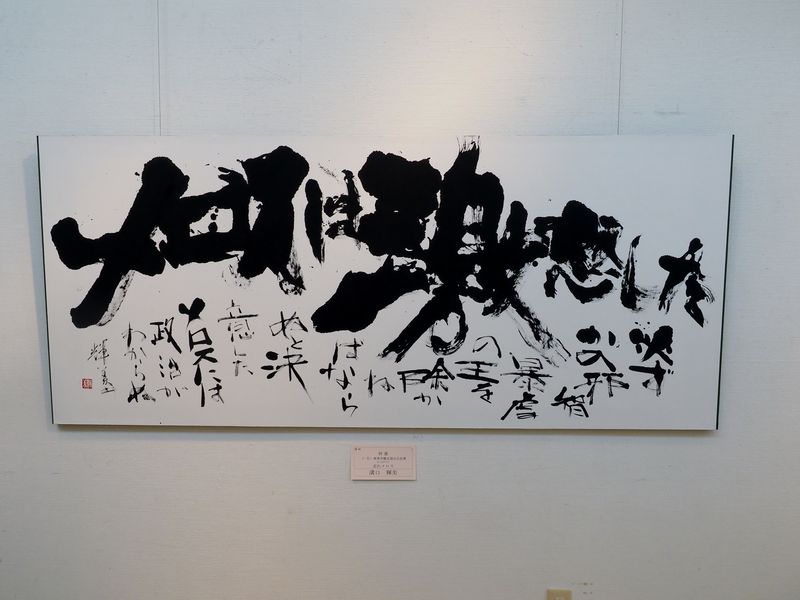 メロスは激怒した
必ず
かの邪
智
暴虐
の王を
除か
なけ
れ
ばなら
ぬと決
意した
メロスには
政治が
わからぬ
走れメロス
溝口